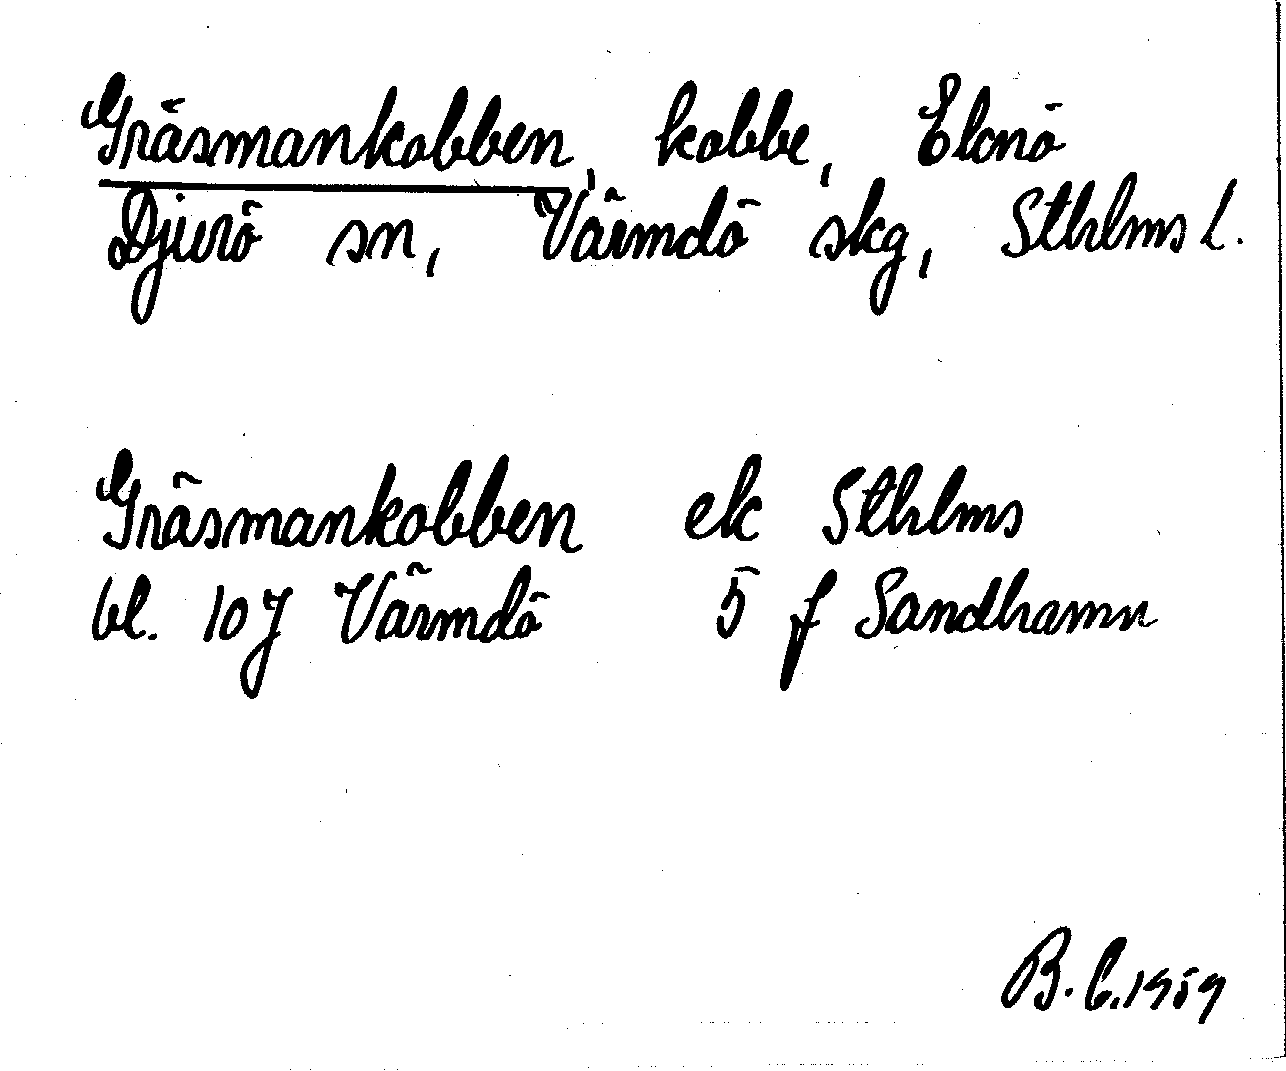 Gräsmankobben, kobbe, Eknö
Djurö sn, Värmdö skg, Sthlms l.
Gräsmankobben ek Sthlms
bl. 107 Värmdö 5 f Sandhamn
B. C. 1959